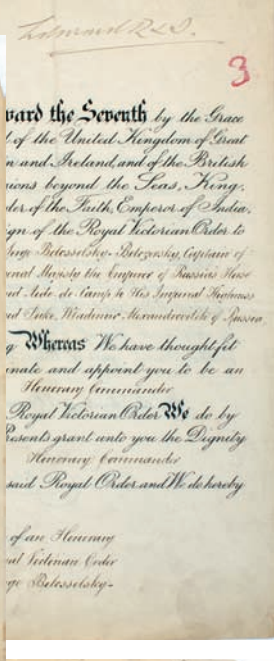 Edward R & I.
3
ward the Seventh by the Grace
of the United Kingdom of Great
n and Ireland, and of the British
ions beyond the Seas, King,
der of the Faith, Emperor of India,
ign of the Royal Victorian Order to
Serge Belosselsky-Belozersky, Captain of
erial Majesty the Emperor of Russia's Horse
and Aide-de-Camp to His Imperial Highness
nd Duke Wladimir Alexandrovitch of Russia
g Whereas We have thought fit
inate and appoint you to be an
Honorary Commander
Royal Victorian Order We do by
Presents grant unto you the Dignity
Honorary Commander
said Royal Order and We do hereby
of an Honorary
yal Victorian Order
rge Belosselsky-